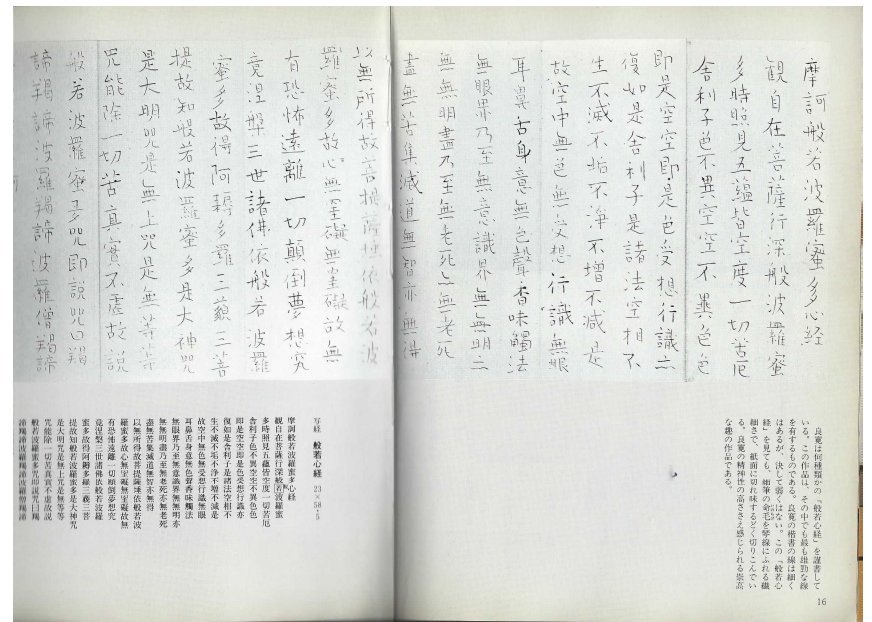 摩訶般若波羅蜜多心経
観自在菩薩行深般波羅蜜
多時照見五蘊皆空度一切苦厄
舎利子色不異空空不異色色
即是空空即是色受想行識亦
復如是舎利子是諸法空相不
生不滅不垢不浄不増不減是
故空中無色無受想行識無眼
耳鼻舌身意無色聲香味觸法
無眼界乃至無意識界無無明亦
無無明盡乃至無老死亦無老死
盡無苦集滅道無智亦無得
以無所得故菩提薩埵依般若波
羅蜜多故心無罣礙無罣礙故無
有恐怖遠離一切顛倒夢想究
竟涅槃三世諸佛依般若波羅
蜜多故得阿耨多羅三藐三菩
提故知般若波羅蜜多是大神咒
是大明咒是無上咒是無等等
咒能除一切苦真實不虚故説
般若波羅蜜多咒即説咒曰羯
諦羯諦波羅羯諦波羅僧羯諦
良寛は何種類かの『般若心経』を謹書して
いる。この作品は、その中でも最も雄勁な線
を有するものである。良寛の楷書の線は細く
はあるが、決して弱くはない。この『般若心
経』を見ても、細筆の命毛を琴線にふれる繊
細さで、紙面に切れ味するどく切りこんでい
る。良寛の精神性の高ささえ感じられる崇高
な趣の作品である。
16
写経 般若心経 23×58・5
摩訶般若波羅蜜多心経
観自在菩薩行深般若波羅蜜
多時照見五蘊皆空度一切苦厄
舎利子色不異空空不異色色
即是空空即是色受想行識亦
復如是舎利子是諸法空相不
生不滅不垢不浄不増不減是
故空中無色無受想行識無眼
耳鼻舌身意無色聲香味觸法
無眼界乃至無意識界無無明亦
無無明盡乃至無老死亦無老死
盡無苦集滅道無智亦無得
以無所得故菩提薩埵依般若波
羅蜜多故心無罣礙無罣礙故無
有恐怖遠離一切顛倒夢想究
竟涅槃三世諸佛依般若波羅
蜜多故得阿耨多羅三藐三菩
提故知般若波羅蜜多是大神咒
是大明咒是無上咒是無等等
咒能除一切苦真実不虚故説
般若波羅蜜多咒即説咒曰羯
諦羯諦波羅羯諦波羅僧羯諦